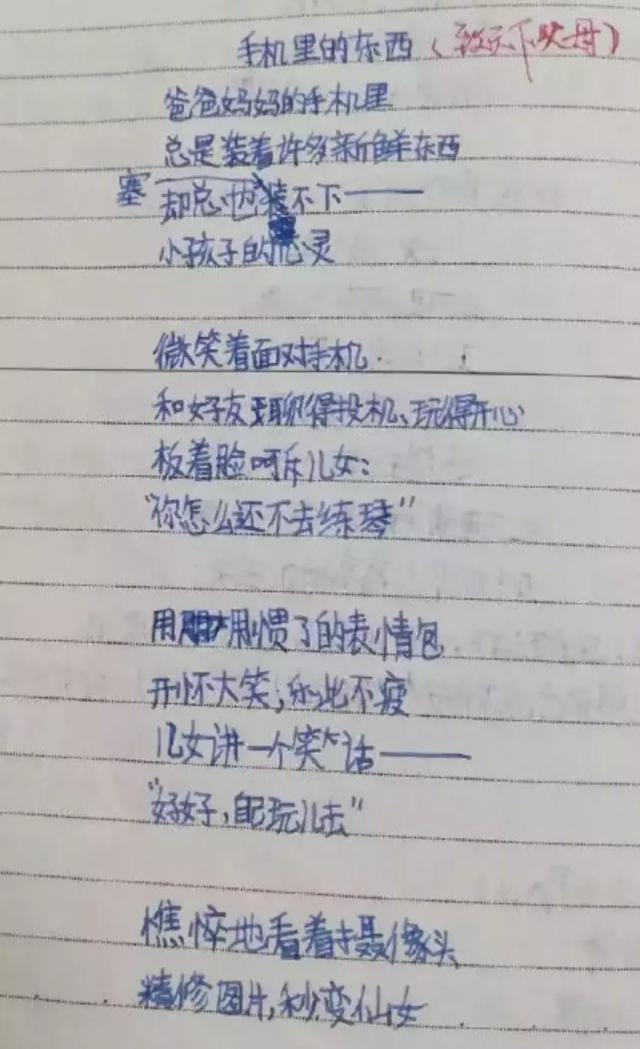 手机里的东西(致天下父母)
爸爸妈妈的手机里
总是装着许多新鲜东西
塞 却总也装不下——
小孩子的心灵
微笑着面对手机
和好友聊得投机、玩得开心
板着脸呵斥儿女:
"你怎么还不去练琴"
用用惯了的表情包
开怀大笑,乐此不疲
儿女讲一个笑话——
"好好,自己玩儿去"
憔悴地看着摄像头
精修图片,秒变仙女